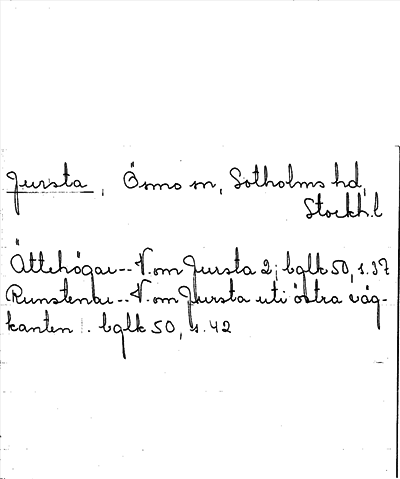 Jursta, Ösmo sn, Sotholms hd,
Stockh.l
Ättehögar -- V. om Jursta 2; bglk 50, s. 37
Runstenar -- V. om Jursta uti östra väg-
kanten. bglk 50, s. 42